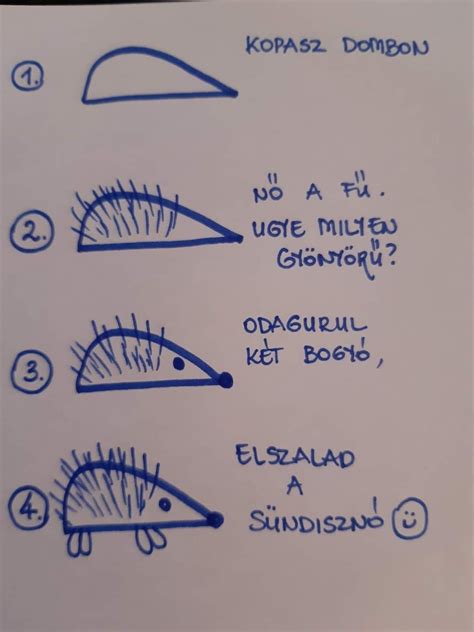 1. KOPASZ DOMBON
2. NŐ A FŰ.
UGYE MILYEN
GYÖNYÖRŰ?
3. ODAGURUL
KÉT BOGYÓ,
4. ELSZALAD
A
SÜNDISZNÓ